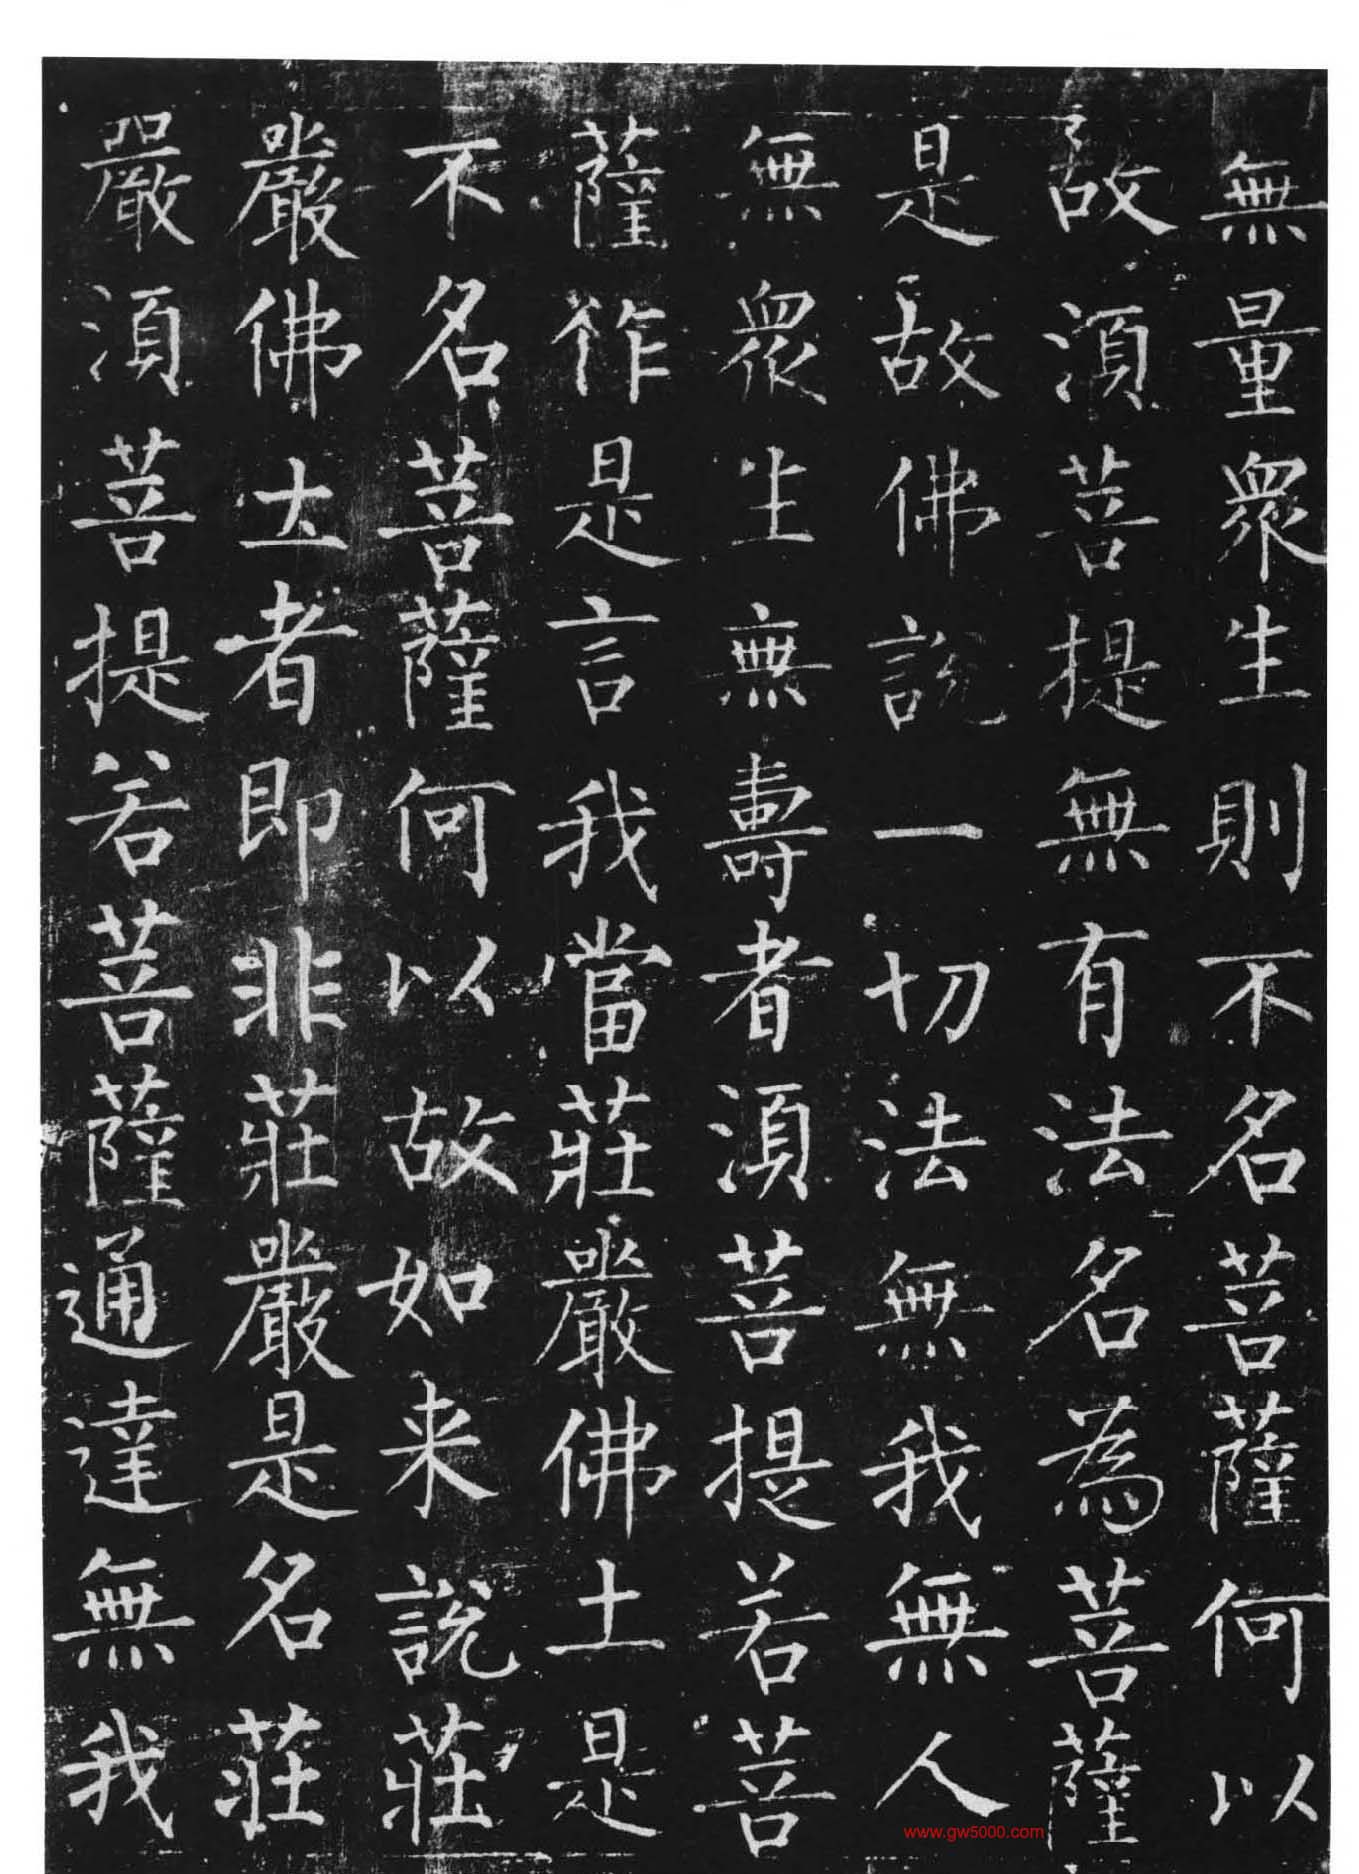 無量衆生則不名菩薩何以
故須菩提無有法名為菩薩
是故佛說一切法無我無人
無衆生無壽者須菩提若菩
薩作是言我當莊嚴佛土是
不名菩薩何以故如来說莊
嚴佛土者即非莊嚴是名莊
嚴須菩提若菩薩通達無我
www.gw5000.com